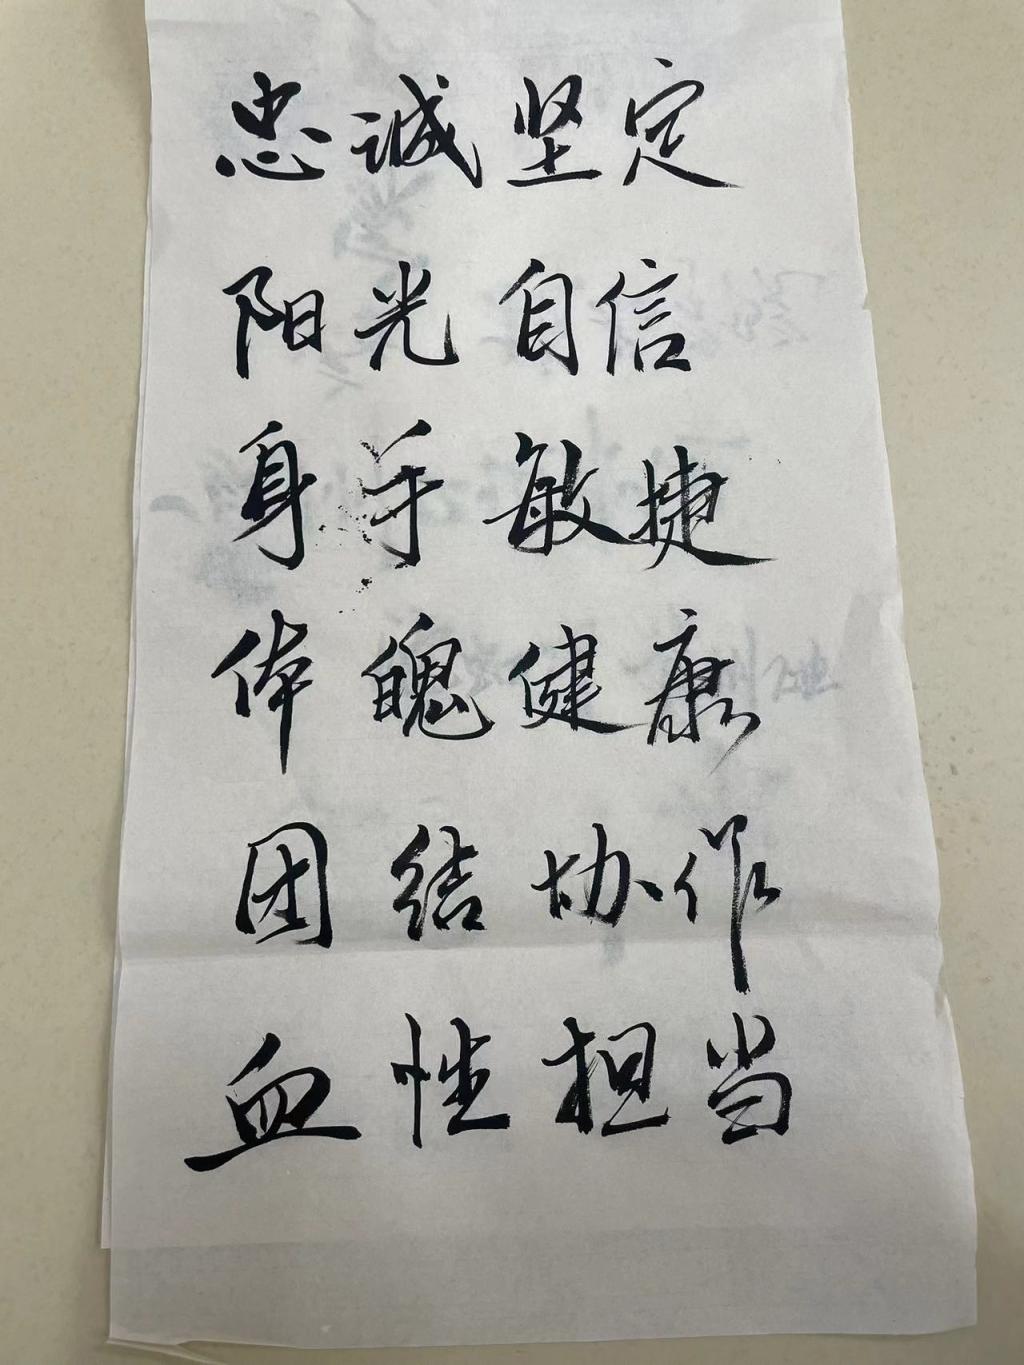 忠诚坚定
阳光自信
身手敏捷
体魄健康
团结协作
血性担当